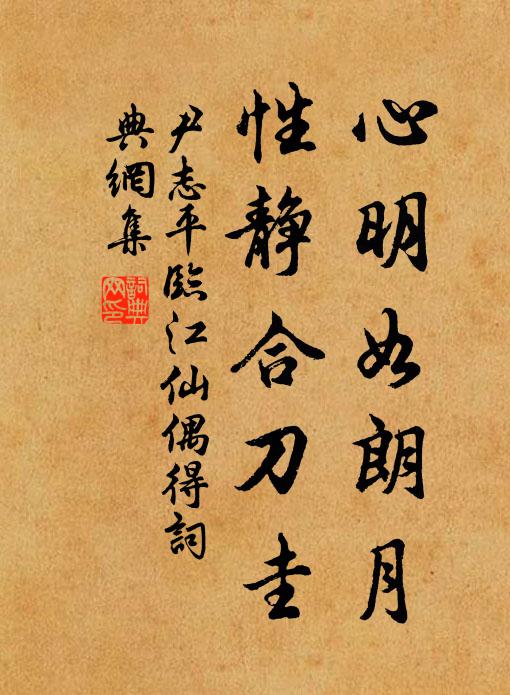 心明如朗月
性静合刀圭
尹志平臨江仙偶得詞
典網集
詞典
网印